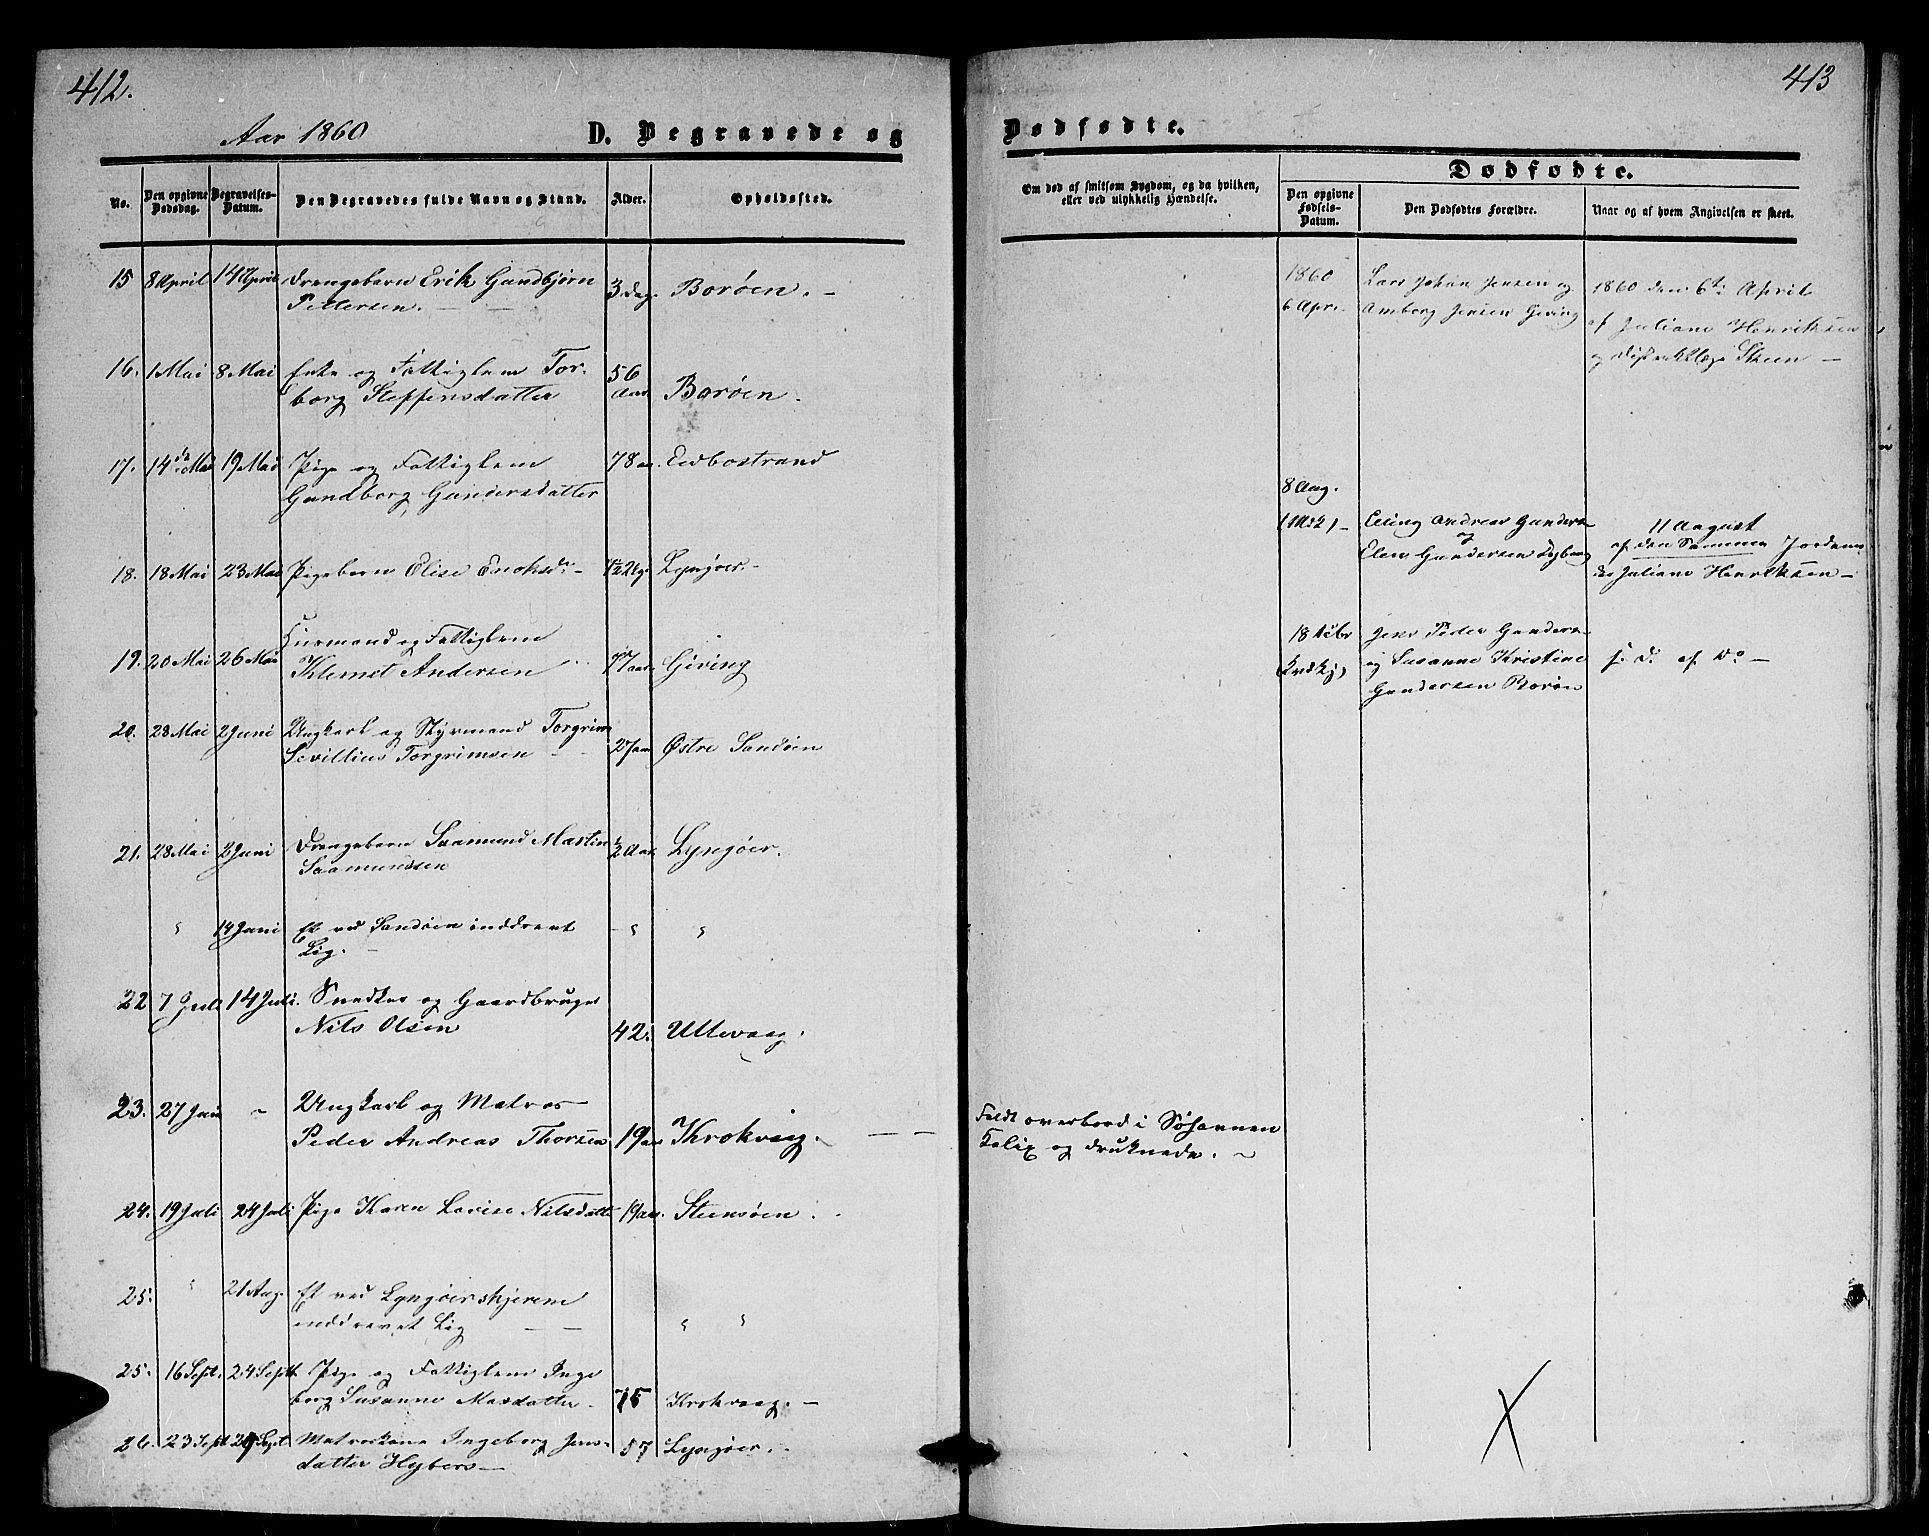 412.
Aar 1860
D. Begravede og
No.
Den opgivne Dødsdag.
Begravelses-Datum.
Den Begravedes fulde Navn og Stand.
Alder.
Opholdssted.
15 8 April 14 April Drengebarn Erik Gundbjørn 3 Dag. Borøen. –
Pettersen. –
16. 1 Mai 8 Mai Enke og Fattiglem Tor- 56
borg Steffensdatter Aar Borøen.
17. 14de Mai 19 Mai Pige og Fattiglem 78 aar. Eidbostrand
Gundborg Gundersdatter
18. 18 Mai 23 Mai Pigebarn Elise Enoksdr – Lyngøer –
Huusmand og Fattiglem
19. 20 Mai 26 Mai Klemet Andersen 77 aar. Giving
20. 28 Mai 2 Juni Ungkarl og Styrmand Torgrim
Sevillius Torgrimsen – 27 aar Østre Sandøen
21. 28 Mai 2 Juni Drengebarn Saamund Martin ½ Aar. Lyngøer.
Saamundsen
" 14 Juni Et ved Sandøen inddrevet – " "
Lig. –
22 7 Juli 14 Juli. Snedker og Gaardbruger
Nils Olsen 42. Uttevaag.
23. 27 Juni ~ Ungkarl og Matros
Peder Andreas Thorsen 19 aar Krokvaag. – –
24. 19 Juli 24 Juli Pige Karen Lovise Nilsdatter 19 aar. Steensøen.
25. " 21 Aug. Et ved Lyngøerskjerene
inddrevet Lig – – " "
25. 16 Sept. 24 Septb. Pige og Fattiglem Inge
borg Susanne Masdatter. 75 Krokvaag. –
26. 23 Sept 29 Sept. Matroskone Ingeborg Jens- 57 Lyngøer. –
datter Hybers –
413
Dødfødte.
Om død af smitsom Sygdom, og da hvilken,
eller ved ulykkelig Hændelse.
Dødfødte.
Den opgivne Fødsels-Datum.
Den Dødfødtes Forældre.
Naar og af hvem Angivelsen er skeet.
1860 Lars Johan Jensen og 1860 den 6te April
6 Apr. Amborg Jensen Giving af Juliane Henriksen
og Distriktslæge Steen –
8 Aug.
(Mdk) – Elling Andreas Gunders- 11 August
og af den Samme Jordemo
Elen Gundersen Dybvig der Juliane Henriksen –
18 Jens Peder Gunders-
(Kvdkj) og Susanne Kristine s. D. af Do –
Gundersen Borøn
Faldt overbord i Søhavnen
Kalix og druknede. ~
X